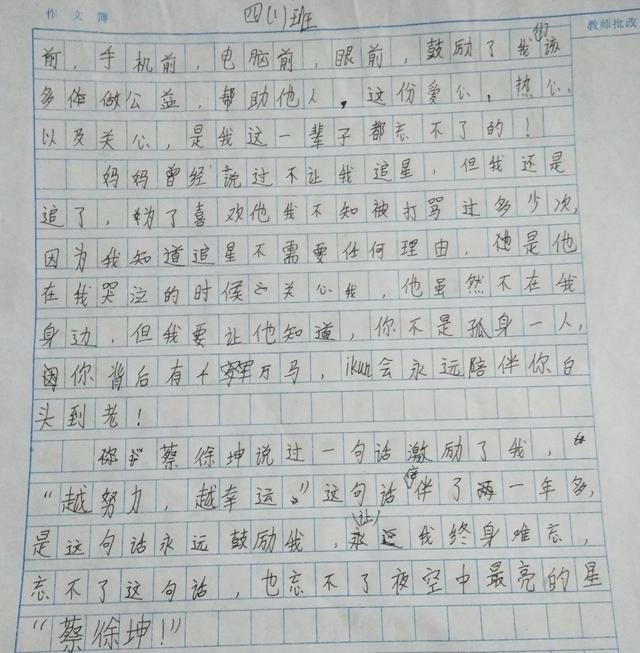 作文簿
四(1)班
教师批改
前，手机前，电脑前，眼前，鼓励了我们该
多作做公益，帮助他人，这份爱心，热心
以及关心，是我这一辈子都忘不了的！
妈妈曾经说过不让我追星，但我还是
追了，为了喜欢他我不知被打骂过多少次，
因为我知道追星不需要任何理由，是他
在我哭泣的时候关心我，他虽然不在我
身边，但我要让他知道，你不是孤身一人，
因你背后有千军万马，ikun会永远陪伴你白
头到老！
蔡徐坤说过一句话激励了我，
“越努力，越幸运。”这句话伴了一年多，
是这句话永远鼓励我，让我终身难忘，
忘不了这句话，也忘不了夜空中最亮的星
“蔡徐坤！”